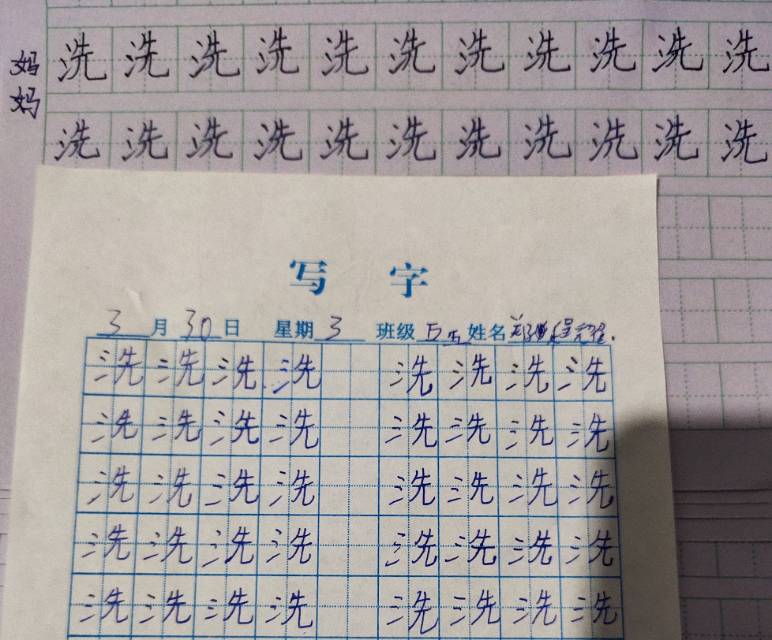 妈妈
洗洗洗洗洗洗洗洗洗洗洗
洗洗洗洗洗洗洗洗洗洗洗
写字
3月30日 星期3 班级 姓名
洗洗洗洗 洗洗洗洗
洗洗洗洗 洗洗洗洗
洗洗洗洗 洗洗洗洗
洗洗洗洗 洗洗洗洗
洗洗洗洗 洗洗洗洗